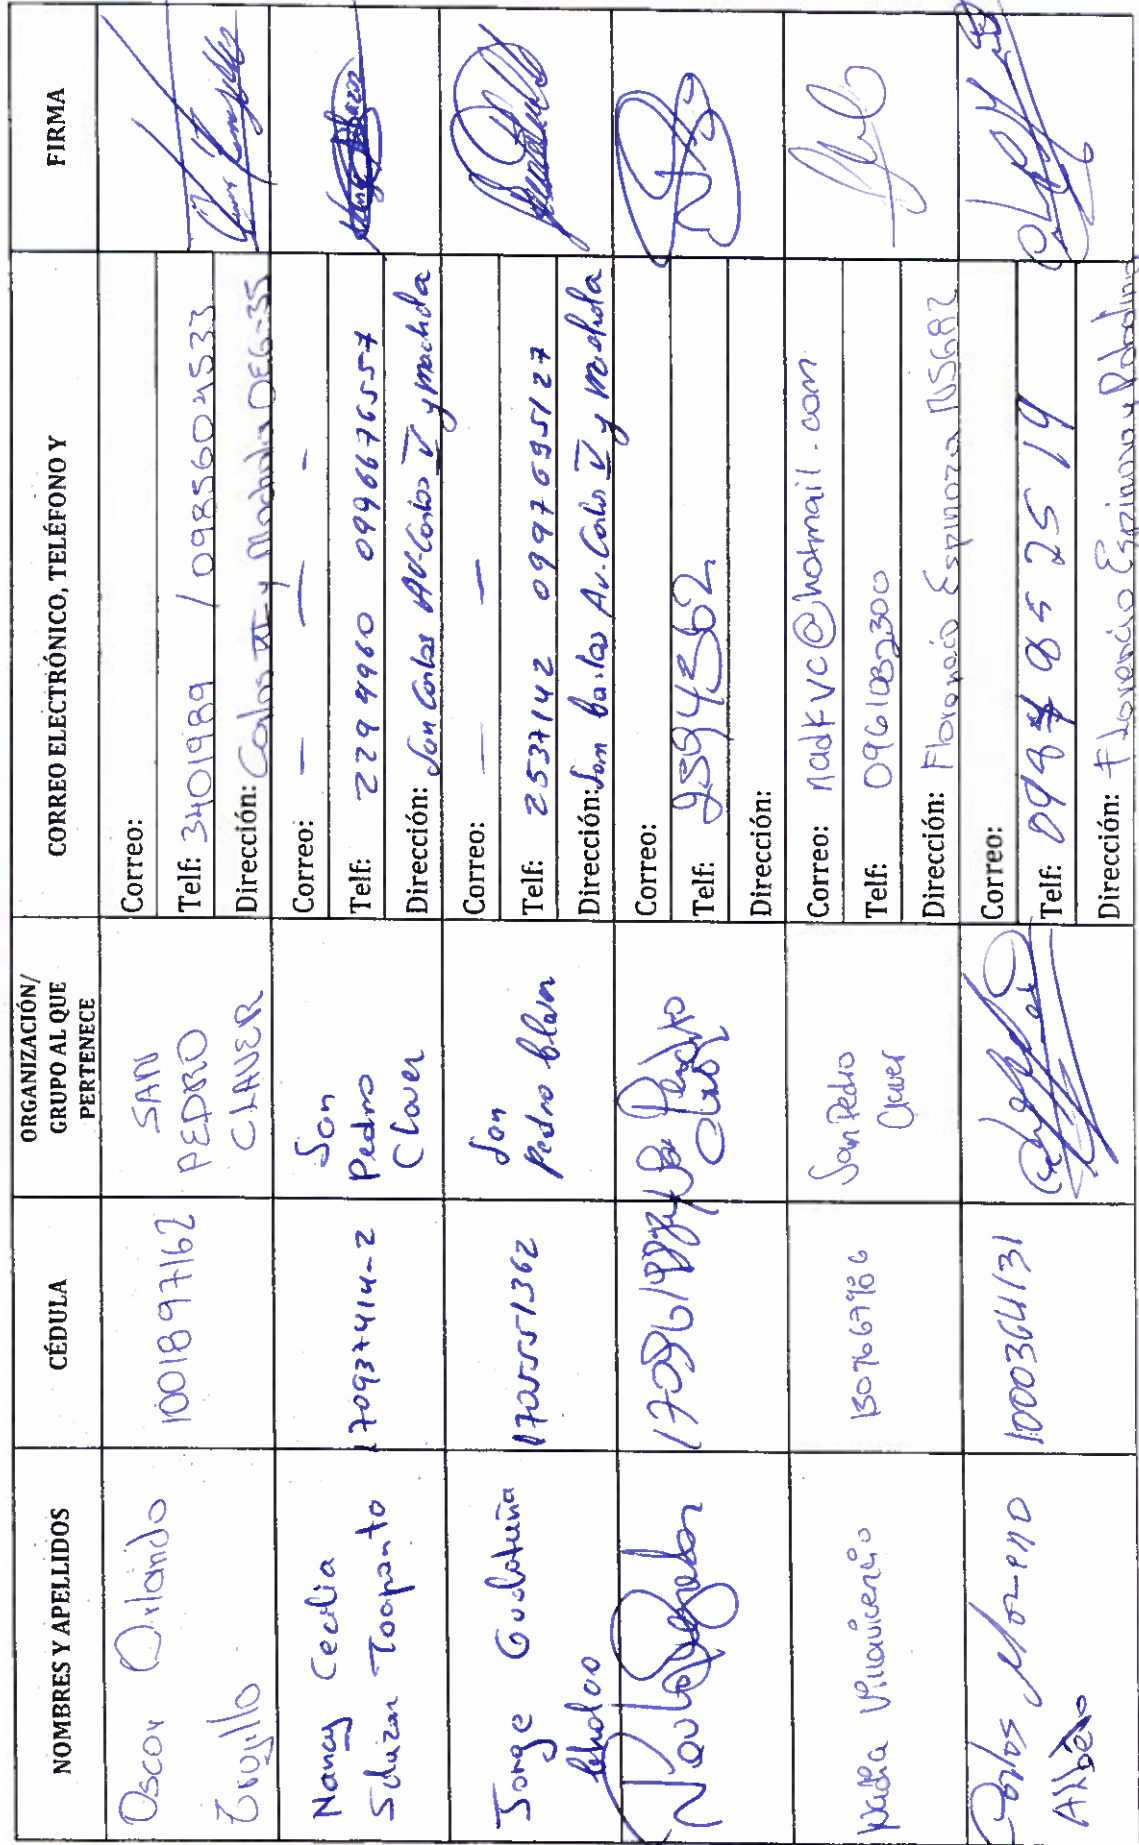 NOMBRES Y APELLIDOS
CÉDULA
ORGANIZACIÓN/
GRUPO AL QUE
PERTENECE
CORREO ELECTRÓNICO, TELÉFONO Y
FIRMA
Oscar Orlando
Trujillo
1001897162
SAN
PEDRO
CLAVER
Correo:
Telf: 3401989 / 0985604533
Dirección: Carlos y Machala OE6-35
Nancy Cecilia
Toapanto
170937414-2
San
Pedro
Claver
Correo: — — -
Telf: 2294960 0996676557
Dirección: San Carlos AV-Carlos V y machala
Jorge
1705551362
San
pedro
Correo: — —
Telf: 2537142 0997695127
Dirección: San Carlos Av. Carlos V y
Correo:
Telf: 2594362
Dirección:
Nadia Villavicencio
San Pedro
Claver
Correo: nadkvc@hotmail.com
Telf: 0961082300
Dirección: Florencio Espinoza N5682
Carlos Moreno
Alberto
1000364131
Correo:
Telf: 25 19
Dirección: Florencio Espinoza y